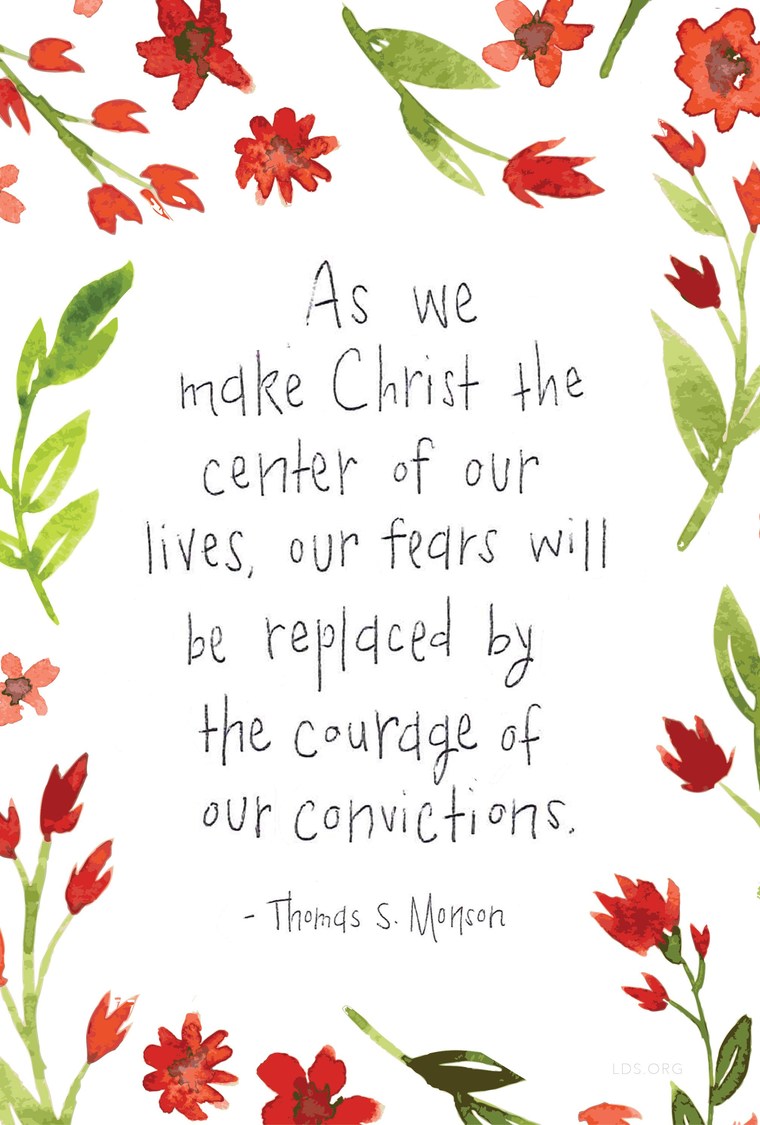 As we
make Christ the
center of our
lives, our fears will
be replaced by
the courage of
our convictions.
- Thomas S. Monson
LDS.ORG